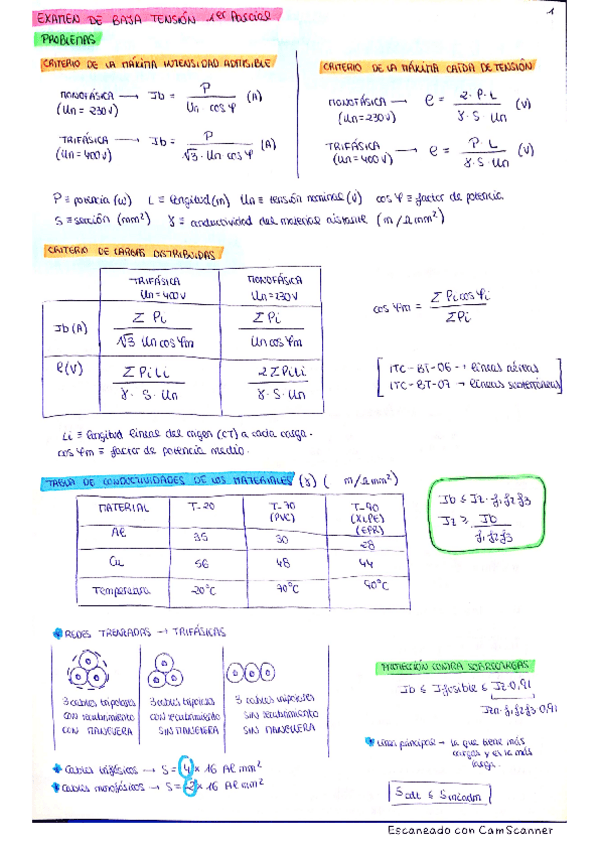 1
EXAMEN DE BAJA TENSIÓN 1er Parcial
PROBLEMAS
CRITERIO DE LA MÁXIMA INTENSIDAD ADMISIBLE
MONOFÁSICA → Ib = P / Un · cos φ (A)
(Un = 230V)
TRIFÁSICA → Ib = P / √3 · Un cos φ (A)
(Un = 400V)
CRITERIO DE LA MÁXIMA CAÍDA DE TENSIÓN
MONOFÁSICA → e = 2 · P · L / γ · S · Un (V)
(Un = 230V)
TRIFÁSICA → e = P · L / γ · S · Un (V)
(Un = 400V)
P ≡ potencia (W) L ≡ longitud (m) Un ≡ tensión nominal (V) cos φ ≡ factor de potencia
S ≡ sección (mm²) γ ≡ conductividad del material (m/Ω mm²)
CRITERIO DE CARGAS DISTRIBUIDAS
TRIFÁSICA Un = 400V
MONOFÁSICA Un = 230V
Ib (A) Σ Pi / √3 Un cos φm Σ Pi / Un cos φm
e (V) Σ Pi Li / γ · S · Un 2 Σ Pi Li / γ · S · Un
cos φm = Σ Pi cos φi / Σ Pi
ITC-BT-06 → líneas aéreas
ITC-BT-07 → líneas subterráneas
Li ≡ longitud lineal del origen (CT) a cada carga.
cos φm ≡ factor de potencia medio.
TABLA DE CONDUCTIVIDADES DE LOS MATERIALES (γ) (m/Ω mm²)
MATERIAL T-20 T-70 (PVC) T-90 (XLPE) (EPR)
Al 35 30 28
Cu 56 48 44
Temperatura 20°C 70°C 90°C
Ib ≤ Iz · f1 f2 f3
Iz ≥ Ib / f1 f2 f3
REDES TRENZADAS → TRIFÁSICAS
3 cables unipolares
con recubrimiento
CON MANGUERA
3 cables unipolares
con recubrimiento
SIN MANGUERA
3 cables unipolares
SIN recubrimiento
SIN MANGUERA
Cables trifásicos → S = 4 × 16 Al mm²
Cables monofásicos → S = 2 × 16 Al mm²
PROTECCIÓN CONTRA SOBRECARGAS
Ib ≤ I fusible ≤ Iz · 0,91
Izn · f1 f2 f3 0,91
Línea principal → la que tiene más
cargas y es la más
larga.
Escaneado con CamScanner